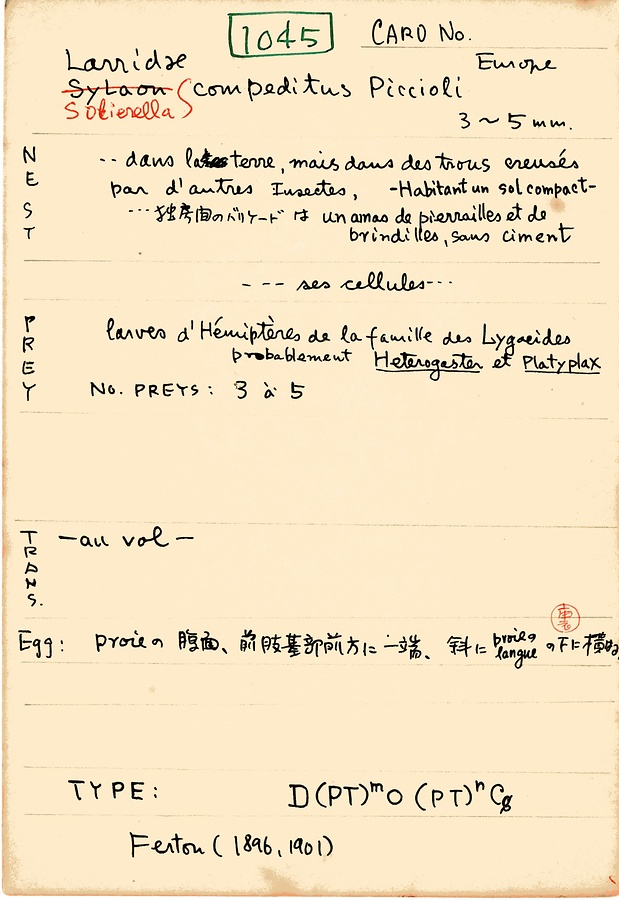 1045 CARD No.
Larridae Europe
Sylaon compeditus Piccioli
Solierella
3 ~ 5 mm.
NEST
-- dans la terre, mais dans des trous creusés
par d'autres Insectes, -Habitant un sol compact-
--- 独房間のバリケード は un amas de pierrailles et de
brindilles, sans ciment
--- ses cellules---
PREY
larves d'Hémiptères de la famille des Lygaeides
probablement Heterogaster et Platyplax
No. PREYS: 3 à 5
TRANS.
-au vol-
Egg: proieの腹面、前肢基部前方に一端、斜にproieの langue の下に横
TYPE: D(PT)ᵐO(PT)ⁿC
Ferton (1896, 1901)